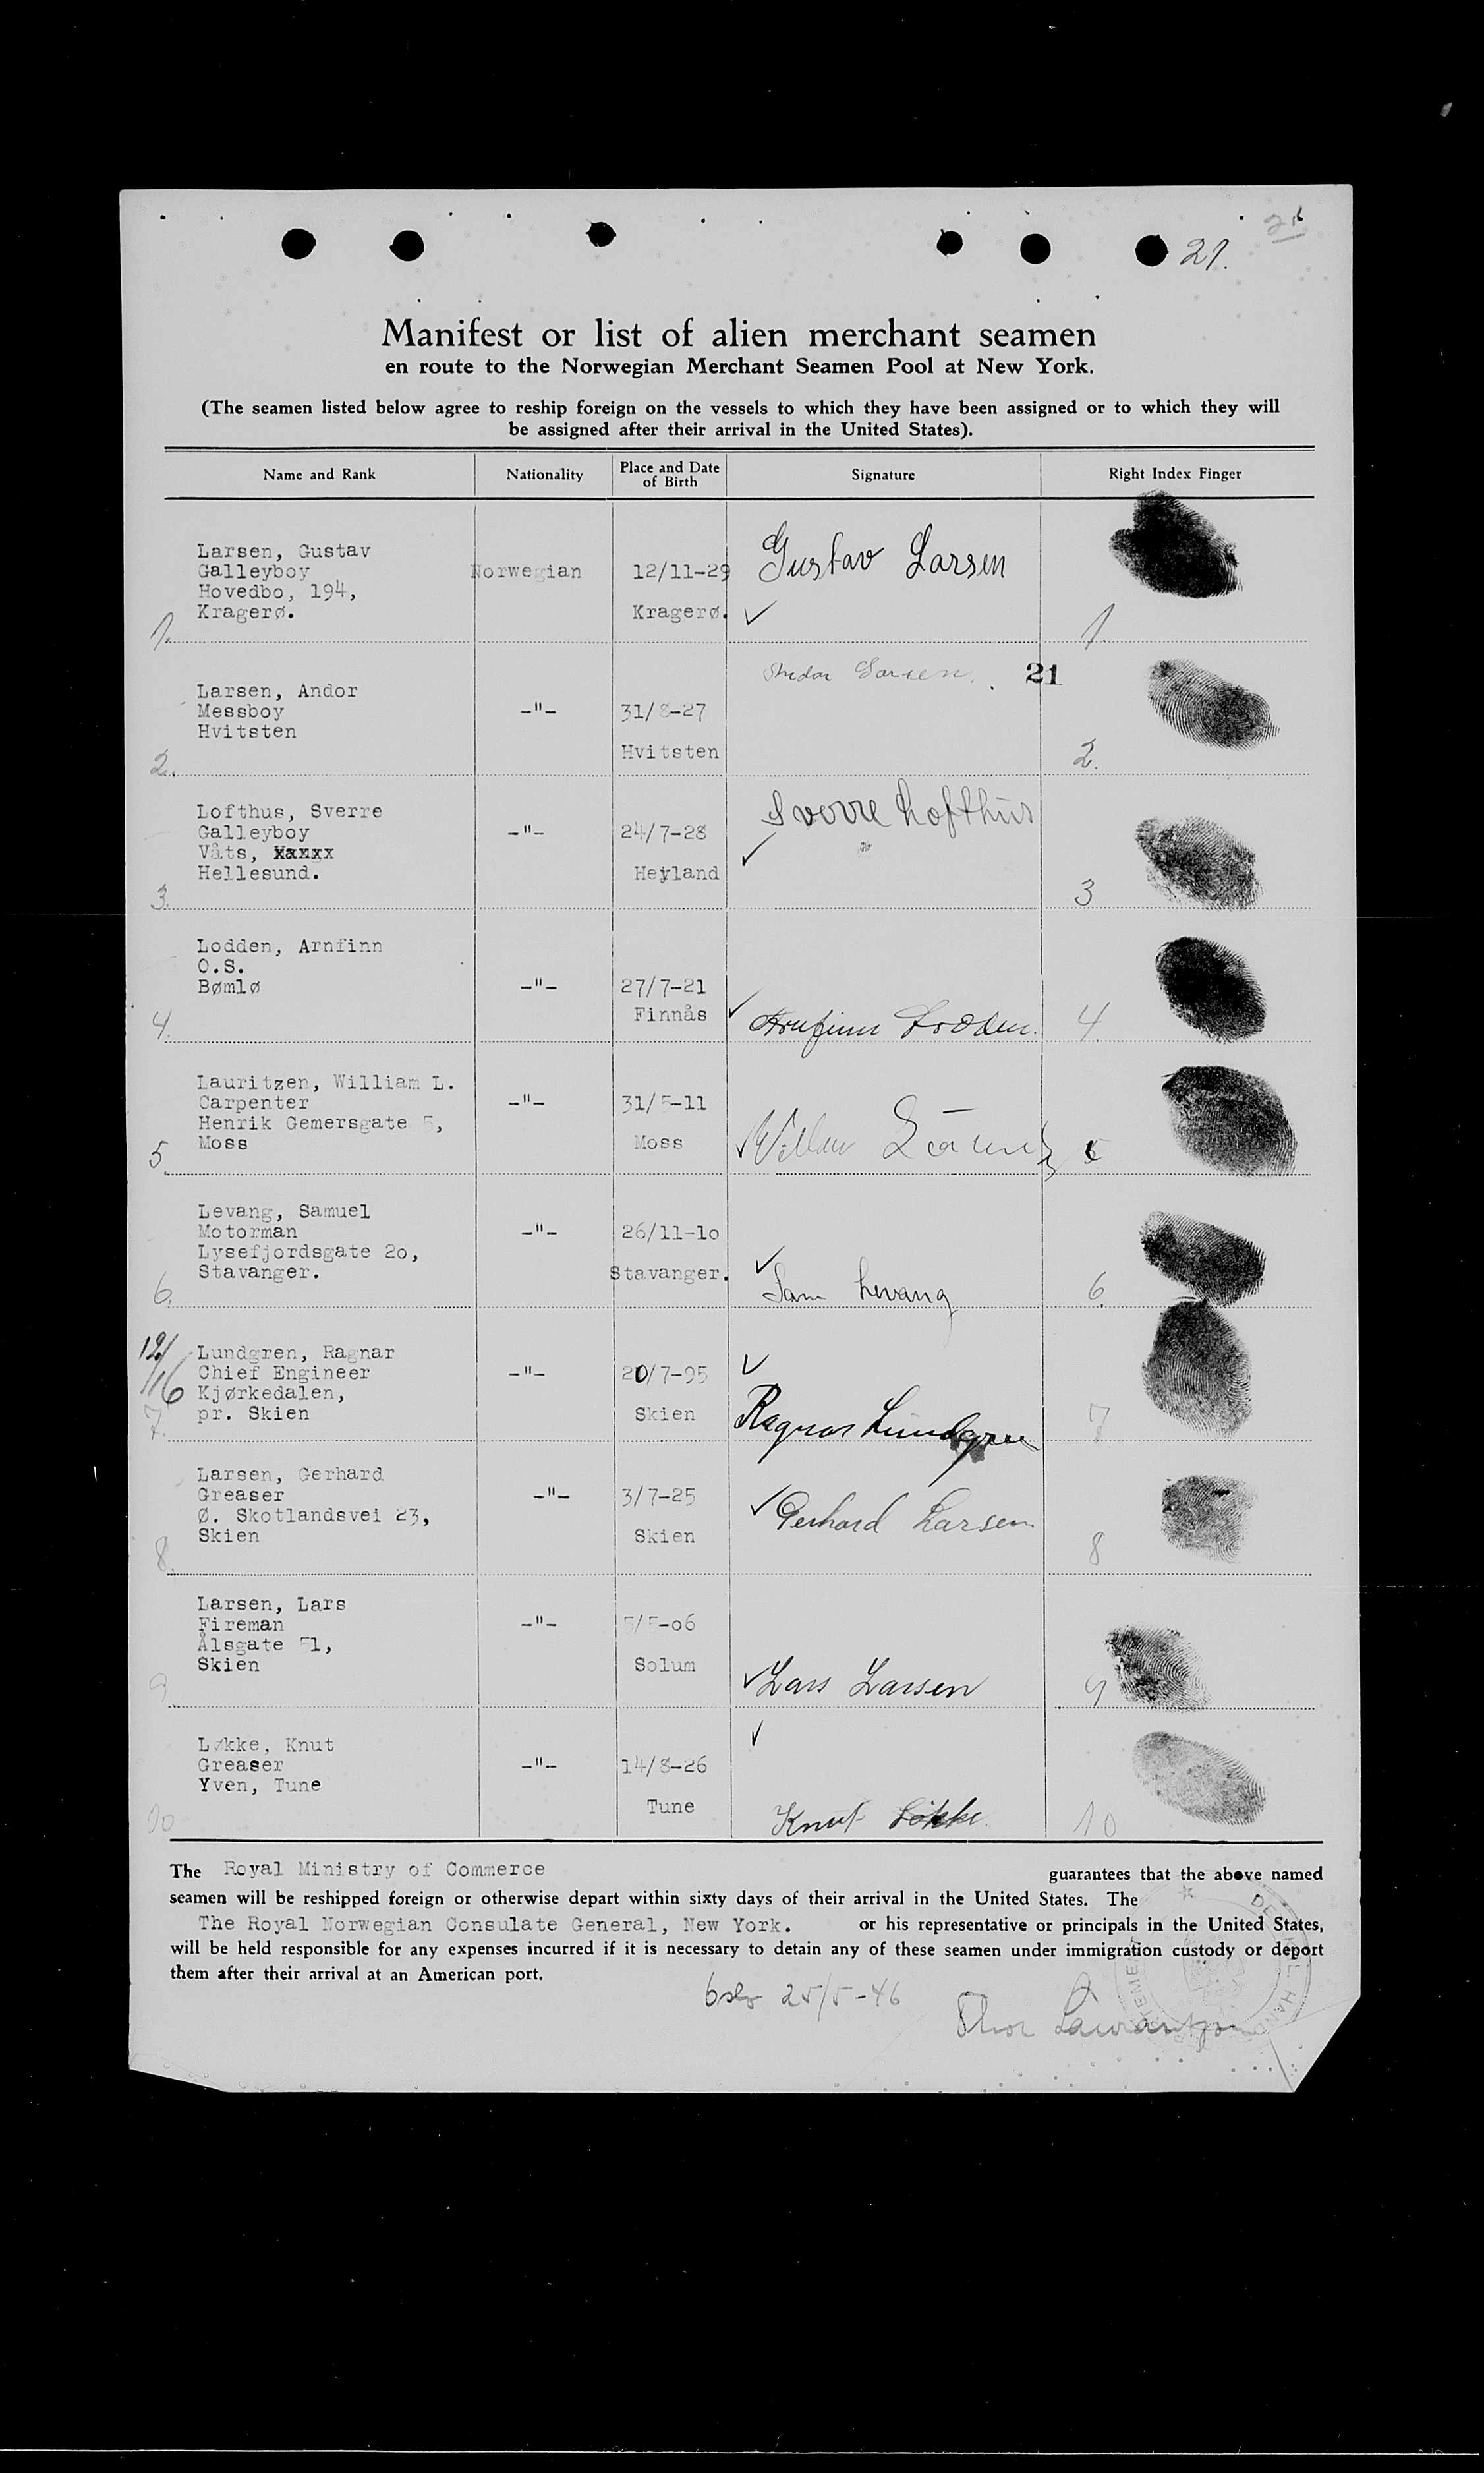 21.
Manifest or list of alien merchant seamen
en route to the Norwegian Merchant Seamen Pool at New York.
(The seamen listed below agree to reship foreign on the vessels to which they have been assigned or to which they will
be assigned after their arrival in the United States).
Name and Rank Nationality Place and Date of Birth Signature Right Index Finger
Larsen, Gustav
Galleyboy Norwegian 12/11-29 Gustav Larsen
Hovedbo, 194,
Kragerø. Kragerø. ✓
1. 1.
Larsen, Andor Andor Larsen. 21
Messboy -"- 31/8-27
Hvitsten
Hvitsten
2. 2.
Lofthus, Sverre Sverre Lofthus
Galleyboy -"- 24/7-28
Våts, ✓
Hellesund. Heyland
3. 3
Lodden, Arnfinn
O.S.
Bømlø -"- 27/7-21
Finnås ✓ Arnfinn Lodden.
4. 4.
Lauritzen, William L.
Carpenter -"- 31/5-11
Henrik Gemersgate 5,
Moss Moss ✓
5 5
Levang, Samuel
Motorman -"- 26/11-1o
Lysefjordsgate 2o, ✓
Stavanger. Stavanger. Sam Levang
6. 6.
12/16 Lundgren, Ragnar ✓
Chief Engineer -"- 20/7-95
Kjørkedalen,
pr. Skien Skien Ragnar Lundgren
7. 7
Larsen, Gerhard
Greaser -"- 3/7-25
Ø. Skotlandsvei 23, ✓ Gerhard Larsen
Skien Skien
8. 8
Larsen, Lars
Fireman -"- 5/5-o6
Ålsgate 51,
Skien Solum ✓ Lars Larsen
9 9
Løkke, Knut ✓
Greaser -"- 14/8-26
Yven, Tune
Tune Knut Løkke.
10 10
The Royal Ministry of Commerce guarantees that the above named
seamen will be reshipped foreign or otherwise depart within sixty days of their arrival in the United States. The
The Royal Norwegian Consulate General, New York. or his representative or principals in the United States,
will be held responsible for any expenses incurred if it is necessary to detain any of these seamen under immigration custody or deport
them after their arrival at an American port.
Oslo 25/5-46